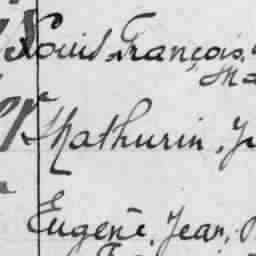 Louis, François,
Ma
Mathurin, J
Eugène, Jean,